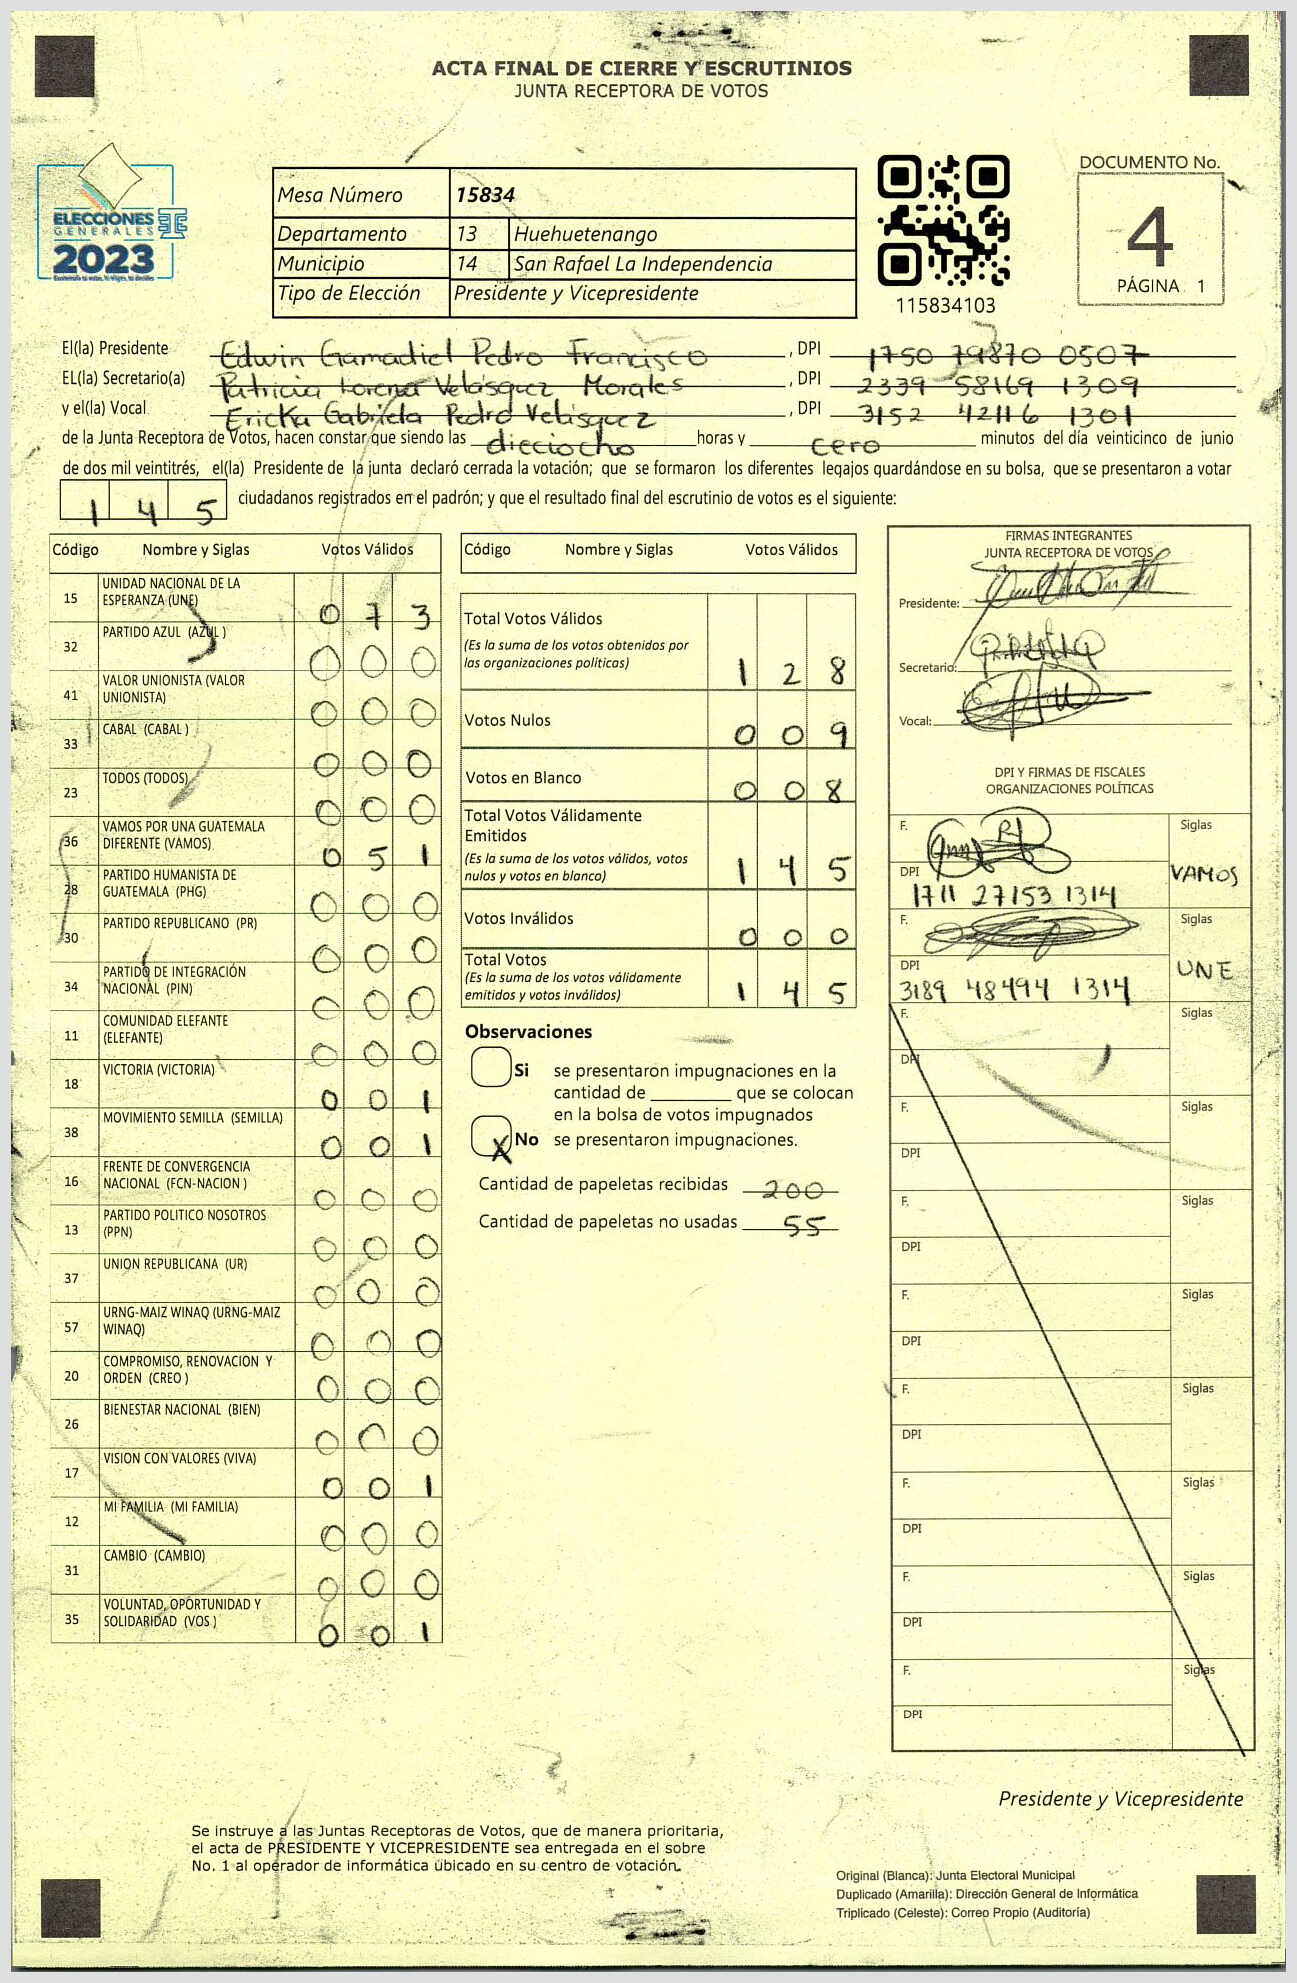 ACTA FINAL DE CIERRE Y ESCRUTINIOS
JUNTA RECEPTORA DE VOTOS
ELECCIONES
GENERALES
2023
Mesa Número 15834
Departamento 13 Huehuetenango
Municipio 14 San Rafael La Independencia
Tipo de Elección Presidente y Vicepresidente
115834103
DOCUMENTO No.
4
PÁGINA 1
El(la) Presidente Edwin Gamadiel Pedro Francisco , DPI 1750 79870 0507
EL(la) Secretario(a) Patricia Lorena Velásquez Morales , DPI 2339 58169 1309
y el(la) Vocal Ericka Gabriela Pedro Velásquez , DPI 3152 42116 1301
de la Junta Receptora de Votos, hacen constar que siendo las dieciocho horas y cero minutos del día veinticinco de junio
de dos mil veintitrés, el(la) Presidente de la junta declaró cerrada la votación; que se formaron los diferentes legajos guardándose en su bolsa, que se presentaron a votar
1 4 5 ciudadanos registrados en el padrón; y que el resultado final del escrutinio de votos es el siguiente:
Código Nombre y Siglas Votos Válidos
15 UNIDAD NACIONAL DE LA
ESPERANZA (UNE) 0 7 3
32 PARTIDO AZUL (AZUL ) 0 0 0
41 VALOR UNIONISTA (VALOR
UNIONISTA) 0 0 0
33 CABAL (CABAL ) 0 0 0
23 TODOS (TODOS) 0 0 0
36 VAMOS POR UNA GUATEMALA
DIFERENTE (VAMOS) 0 5 1
28 PARTIDO HUMANISTA DE
GUATEMALA (PHG) 0 0 0
30 PARTIDO REPUBLICANO (PR) 0 0 0
34 PARTIDO DE INTEGRACIÓN
NACIONAL (PIN) 0 0 0
11 COMUNIDAD ELEFANTE
(ELEFANTE) 0 0 0
18 VICTORIA (VICTORIA) 0 0 1
38 MOVIMIENTO SEMILLA (SEMILLA) 0 0 1
16 FRENTE DE CONVERGENCIA
NACIONAL (FCN-NACION ) 0 0 0
13 PARTIDO POLITICO NOSOTROS
(PPN) 0 0 0
37 UNION REPUBLICANA (UR) 0 0 0
57 URNG-MAIZ WINAQ (URNG-MAIZ
WINAQ) 0 0 0
20 COMPROMISO, RENOVACION Y
ORDEN (CREO ) 0 0 0
26 BIENESTAR NACIONAL (BIEN) 0 0 0
17 VISION CON VALORES (VIVA) 0 0 1
12 MI FAMILIA (MI FAMILIA) 0 0 0
31 CAMBIO (CAMBIO) 0 0 0
35 VOLUNTAD, OPORTUNIDAD Y
SOLIDARIDAD (VOS ) 0 0 1
Código Nombre y Siglas Votos Válidos
Total Votos Válidos
(Es la suma de los votos obtenidos por
las organizaciones politicas) 1 2 8
Votos Nulos 0 0 9
Votos en Blanco 0 0 8
Total Votos Válidamente
Emitidos
(Es la suma de los votos válidos, votos
nulos y votos en blanco) 1 4 5
Votos Inválidos 0 0 0
Total Votos
(Es la suma de los votos válidamente
emitidos y votos inválidos) 1 4 5
Observaciones
Si se presentaron impugnaciones en la
cantidad de ________ que se colocan
en la bolsa de votos impugnados
X No se presentaron impugnaciones.
Cantidad de papeletas recibidas 200
Cantidad de papeletas no usadas 55
FIRMAS INTEGRANTES
JUNTA RECEPTORA DE VOTOS
Presidente:
Secretario:
Vocal:
DPI Y FIRMAS DE FISCALES
ORGANIZACIONES POLÍTICAS
F. Siglas
DPI VAMOS
1711 27153 1314
F. Siglas
DPI UNE
3189 48494 1314
F. Siglas
DPI
F. Siglas
DPI
F. Siglas
DPI
F. Siglas
DPI
F. Siglas
DPI
F. Siglas
DPI
F. Siglas
DPI
F. Siglas
DPI
Presidente y Vicepresidente
Se instruye a las Juntas Receptoras de Votos, que de manera prioritaria,
el acta de PRESIDENTE Y VICEPRESIDENTE sea entregada en el sobre
No. 1 al operador de informática ubicado en su centro de votación.
Original (Blanca): Junta Electoral Municipal
Duplicado (Amarilla): Dirección General de Informática
Triplicado (Celeste): Correo Propio (Auditoría)